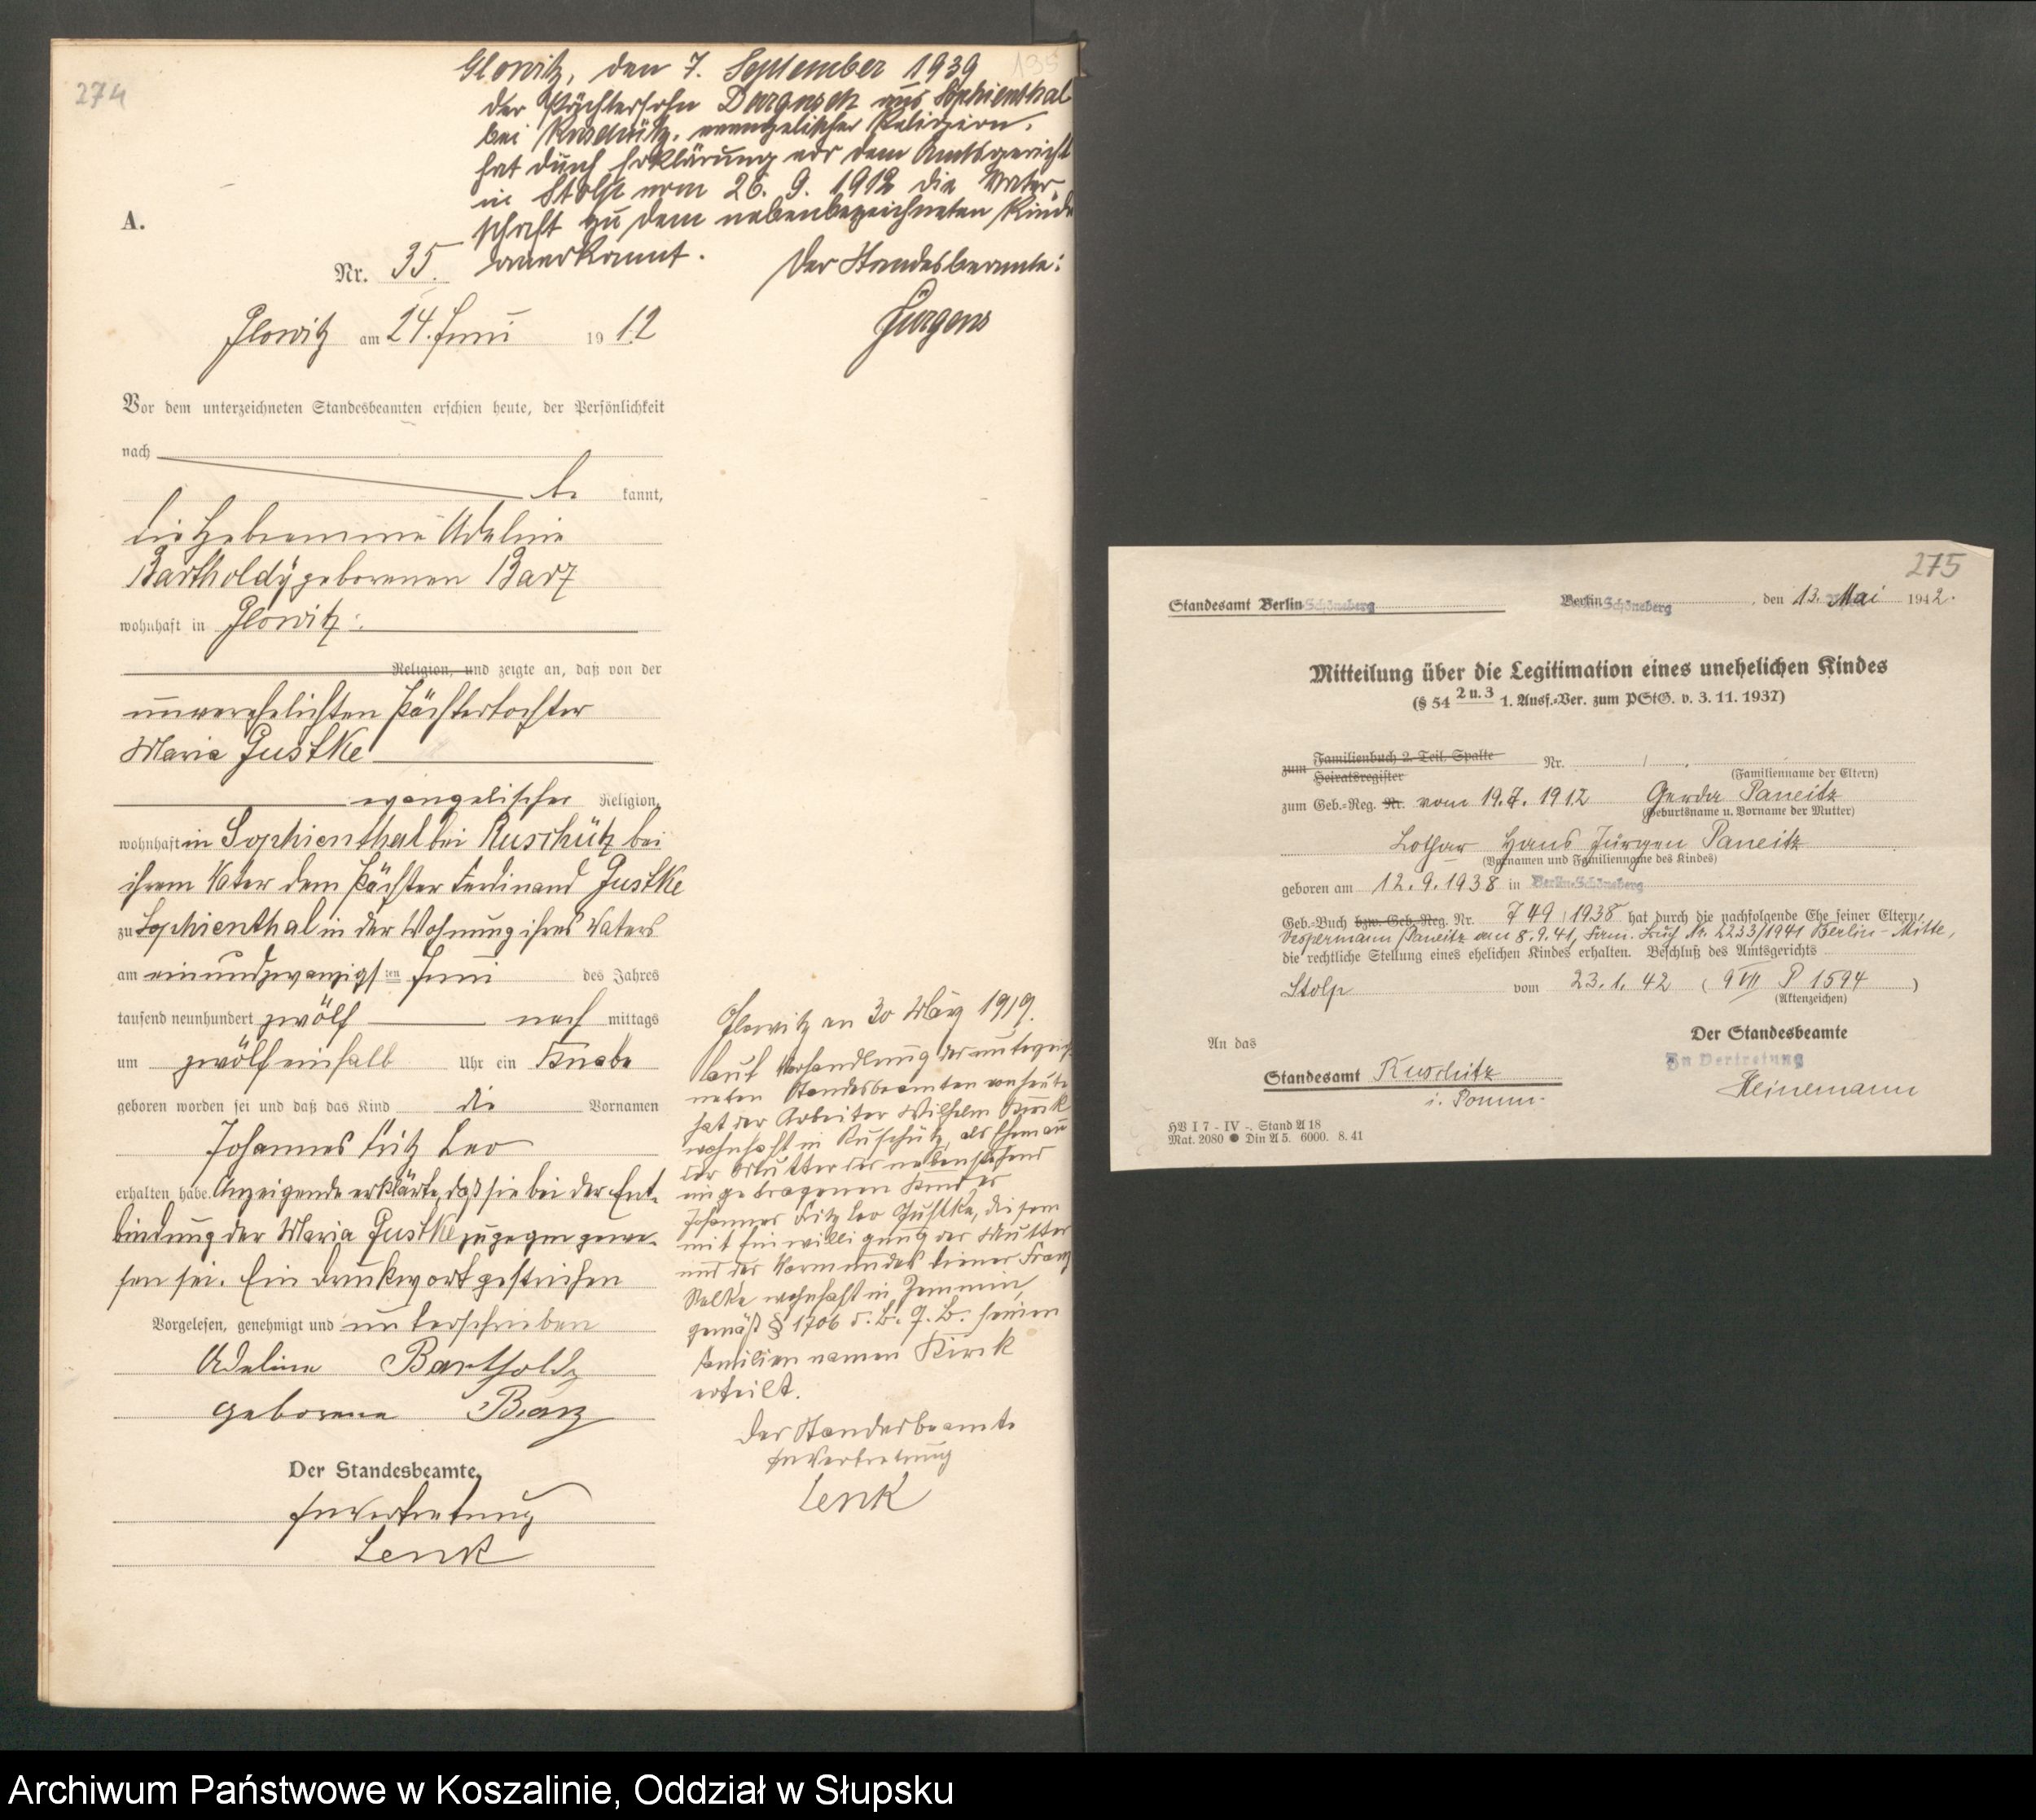 274
135
Glowitz, den 7. September 1939
der Pächtersohn Darganz aus Sophienthal
bei Ruschütz, evangelischer Religion,
hat durch Erklärung vor dem Amtsgericht
in Stolp vom 26. 9. 1912 die Vater-
schaft zu dem nebenbezeichneten Kinde
anerkannt.
Der Standesbeamte:
Jürgens
A.
Nr. 35.
Glowitz am 24. Juni 1912
Vor dem unterzeichneten Standesbeamten erschien heute, der Persönlichkeit
nach
be kannt,
die Hebamme Adeline
Bartholdy geborenen Barz
wohnhaft in Glowitz.
Religion, und zeigte an, daß von der
unverehelichten Pächtertochter
Maria Gustke
evangelischer Religion,
wohnhaft in Sophienthal bei Ruschütz bei
ihrem Vater dem Pächter Ferdinand Gustke
zu Sophienthal in der Wohnung ihres Vaters
am einundzwanzigsten Juni des Jahres
tausend neunhundert zwölf nach mittags
um zwölfeinhalb Uhr ein Knabe
geboren worden sei und daß das Kind die Vornamen
Johannes Fritz Leo
erhalten habe. Anzeigende erklärte, daß sie bei der Ent-
bindung der Maria Gustke zugegen gewe-
sen sei. Ein Druckwort gestrichen
Vorgelesen, genehmigt und unterschrieben
Adeline Bartholdy
geborene Barz
Der Standesbeamte.
In Vertretung
Lenk
Glowitz an 30 März 1919.
Laut Verhandlung des unterzeich-
neten Standesbeamten von heute
hat der Arbeiter Wilhelm Kirk
wohnhaft in Ruschütz, als Ehemann
der Mutter des nebenstehend
eingetragenen Kindes
Johannes Fritz Leo Gustke, diesem
mit Einwilligung der Mutter
und des Vormundes seiner Franz
wohnhaft in Zemmin,
gemäß § 1706 d. B. G. B. seinen
Familiennamen Kirk
erteilt.
Der Standesbeamte
In Vertretung
Lenk
275
Standesamt Berlin Schöneberg
Berlin Schöneberg, den 13. Mai 1942.
Mitteilung über die Legitimation eines unehelichen Kindes
(§ 54 2 u. 3 1. Ausf.-Ver. zum PStG. v. 3. 11. 1937)
zum Familienbuch 2. Teil, Spalte
Heiratsregister
Nr.
(Familienname der Eltern)
zum Geb.-Reg. Nr. vom 19.7.1912 Gerda Paneitz
(Geburtsname u. Vorname der Mutter)
Lothar Hans Jürgen Paneitz
(Vornamen und Familienname des Kindes)
geboren am 12.9.1938 in Berlin-Schöneberg
Geb.-Buch bzw. Geb.-Reg. Nr. 749 / 1938 hat durch die nachfolgende Ehe seiner Eltern,
Vespermann / Paneitz am 8.9.41, Fam. Buch Nr. 2233/1941 Berlin-Mitte,
die rechtliche Stellung eines ehelichen Kindes erhalten. Beschluß des Amtsgerichts
Stolp vom 23.1.42 (9 VII P 1594)
(Aktenzeichen)
Der Standesbeamte
In Vertretung
Heinemann
An das
Standesamt Ruschitz
i. Pomm.
HB I 7 - IV -. Stand A 18
Mat. 2080 ● Din A 5. 6000. 8. 41
Archiwum Państwowe w Koszalinie, Oddział w Słupsku